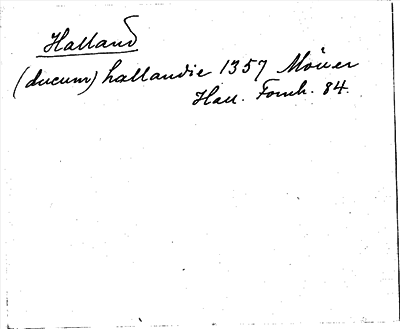 Halland
(ducum) hallandie 1357 Möller
Hall. Fornh. 84.